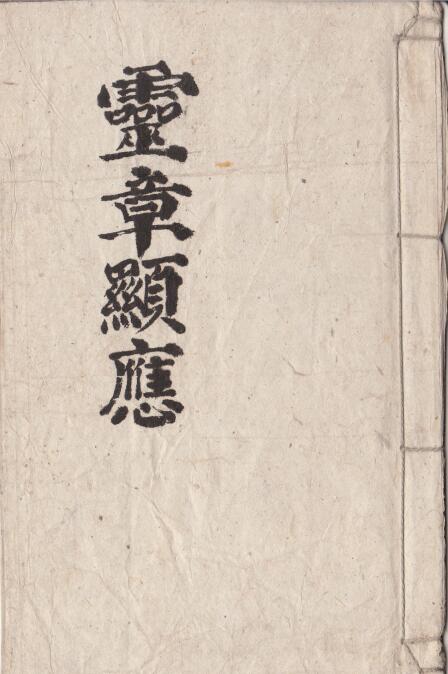 靈章顯應